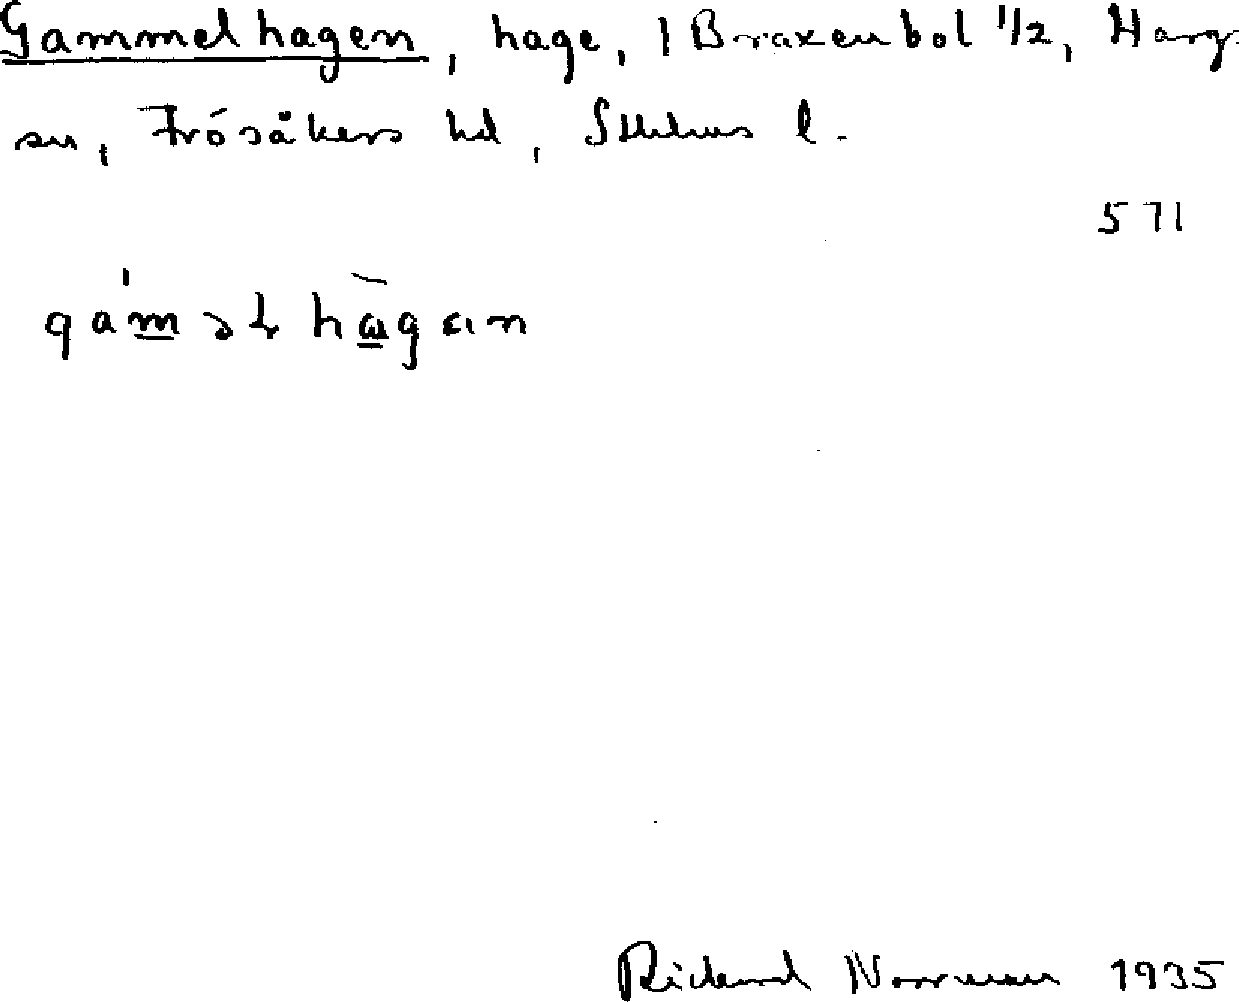 Gammelhagen, hage, 1 Braxenbol 1/2, Hargs
sn, Frösåkers hd, Sthlms l.
571
Richard Norrman 1935